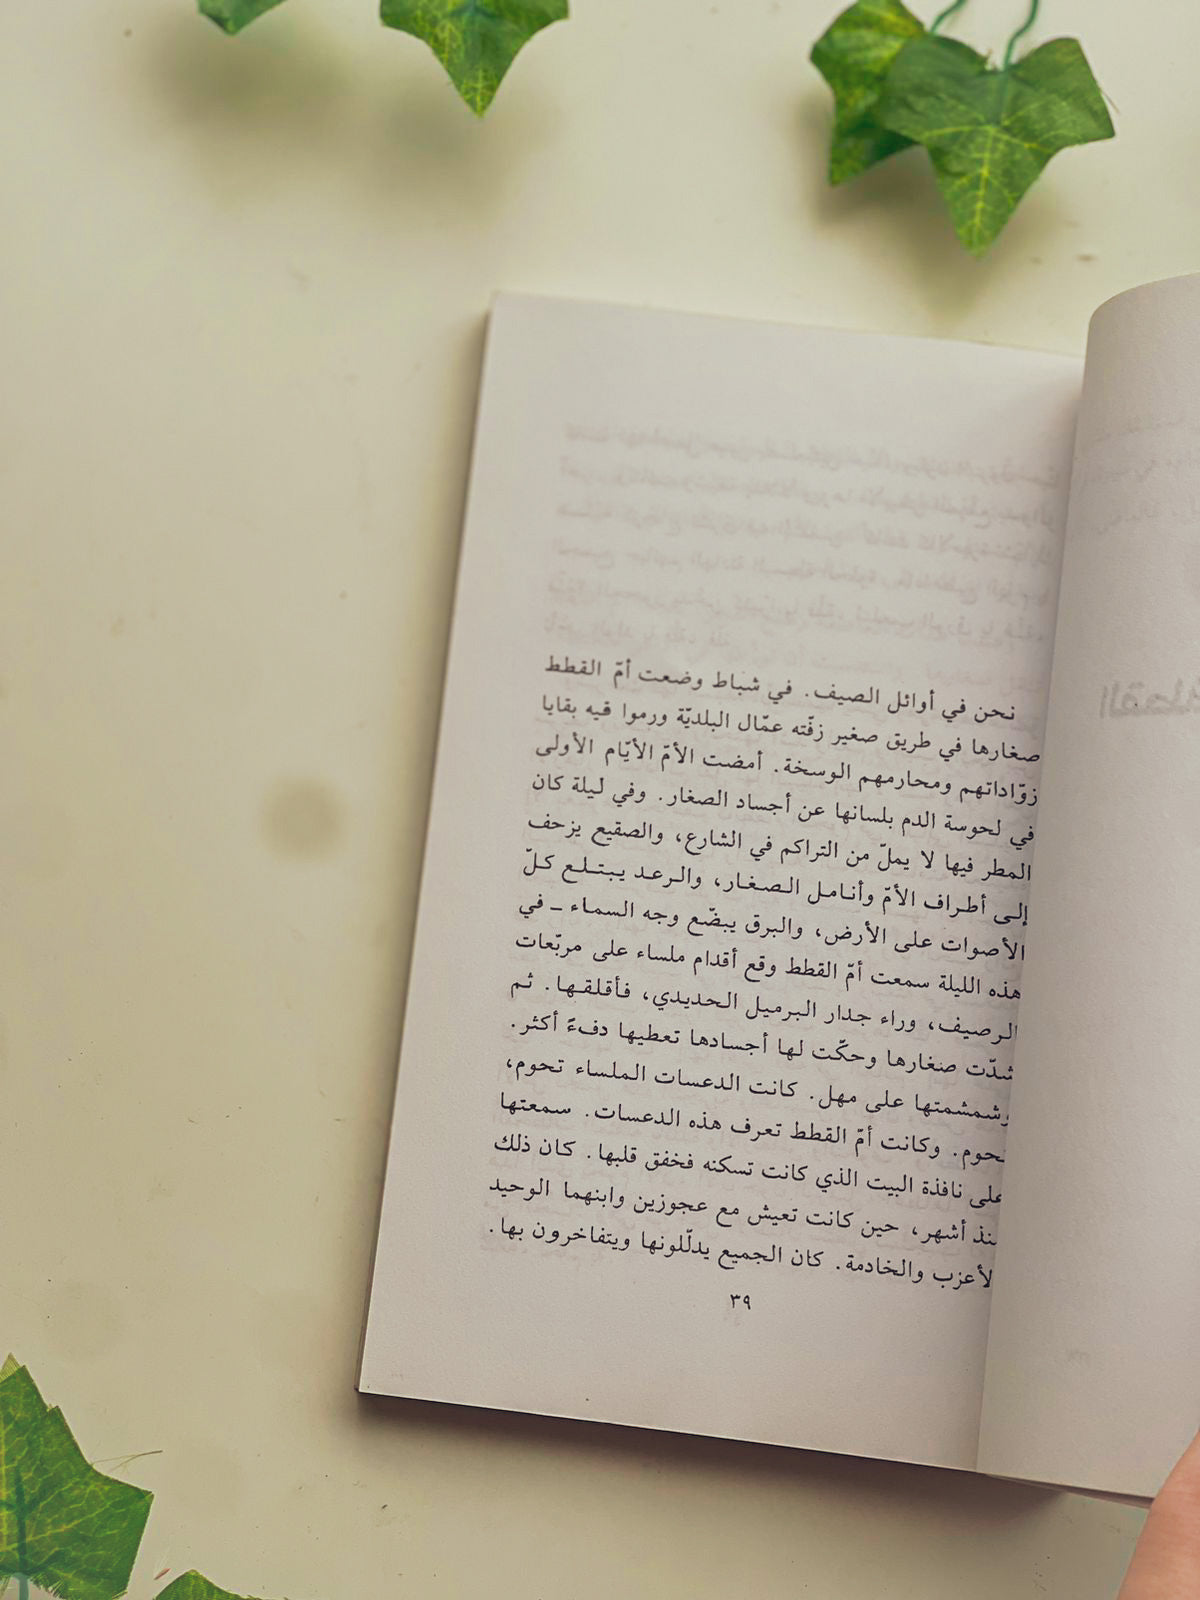 نحن في أوائل الصيف. في شباط وضعت أمّ القطط
صغارها في طريق صغير زفّته عمّال البلديّة ورموا فيه بقايا
زوّاداتهم ومحارمهم الوسخة. أمضت الأمّ الأيّام الأولى
في لحوسة الدم بلسانها عن أجساد الصغار. وفي ليلة كان
المطر فيها لا يملّ من التراكم في الشارع، والصقيع يزحف
إلى أطراف الأمّ وأنامل الصغار، والرعد يبتلع كلّ
الأصوات على الأرض، والبرق يبضّع وجه السماء ـ في
هذه الليلة سمعت أمّ القطط وقع أقدام ملساء على مربّعات
الرصيف، وراء جدار البرميل الحديدي، فأقلقها. ثم
شدّت صغارها وحكّت لها أجسادها تعطيها دفءً أكثر.
وشمشمتها على مهل. كانت الدعسات الملساء تحوم،
تحوم. وكانت أمّ القطط تعرف هذه الدعسات. سمعتها
على نافذة البيت الذي كانت تسكنه فخفق قلبها. كان ذلك
منذ أشهر، حين كانت تعيش مع عجوزين وابنهما الوحيد
الأعزب والخادمة. كان الجميع يدلّلونها ويتفاخرون بها.
٣٩